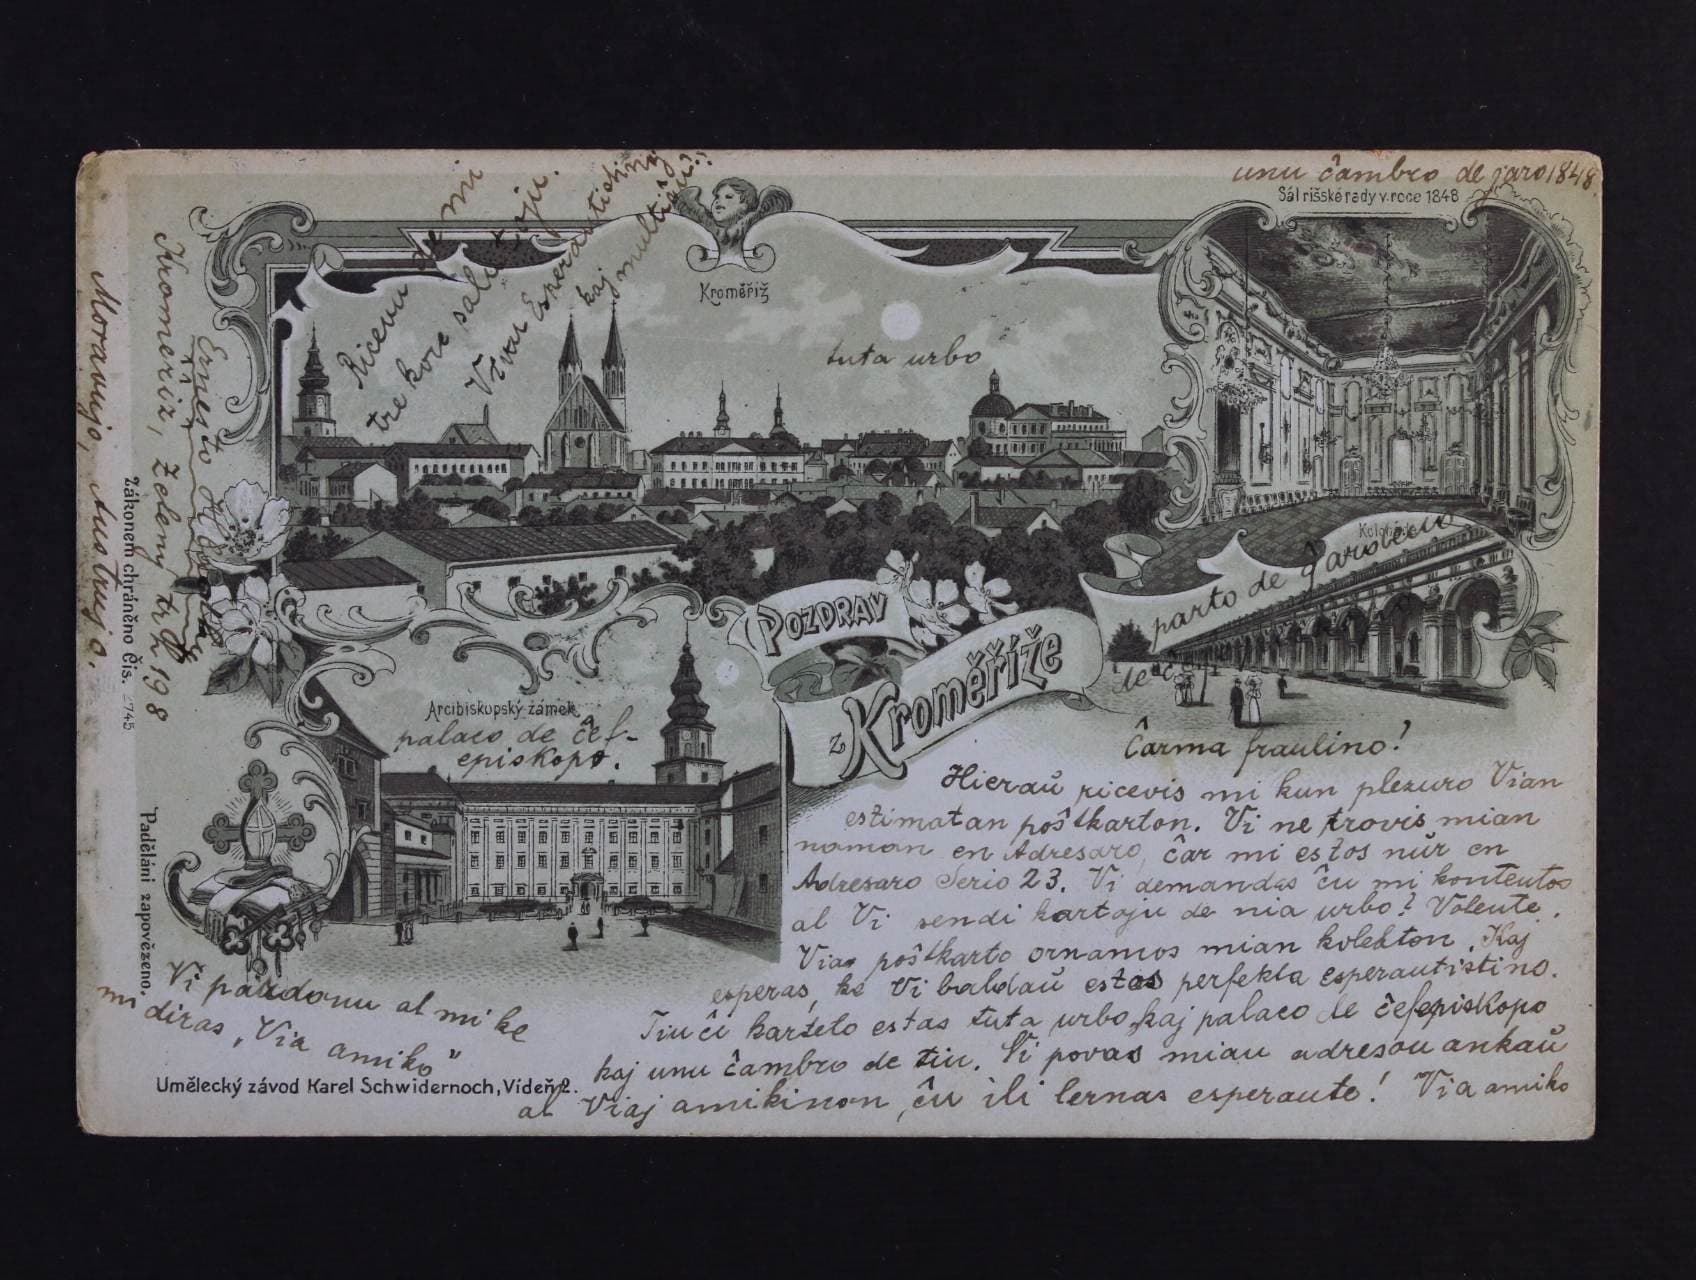 unu ĉambro de jaro 1848.
Sál říšské rady v roce 1848
Ricevu de mi
tre kore salutoju.
Vivu Esperantistinoj
kaj multiĝu!
Kroměříž
tuta urbo
Kromeriz, Zeleny trh 198
Moravujo, Austrujo.
Ernesto
Zákonem chráněno Čís. 2745
Padělání zapovězeno.
parto de ĝardeno
POZDRAV
z Kroměříže
Arcibiskupský zámek
palaco de ĉef-
episkopo.
Ĉarma fraulino!
Hieraŭ ricevis mi kun plezuro Vian
estimatan poŝtkarton. Vi ne trovis mian
noman en Adresaro, ĉar mi estos nur en
Adresaro Serio 23. Vi demandas ĉu mi kontentos
al Vi sendi kartoju de nia urbo? Volente.
Viaj poŝtkarto ornamos mian kolekton. Kaj
esperas, ke Vi baldaŭ estos perfekta esperantistino.
Tiu ĉi karteto estas tuta urbo, kaj palaco de ĉefepiskopo
kaj unu ĉambro de tiu. Vi povas mian adreson ankaŭ
al Viaj amikinon, ĉu ili lernas esperante! Via amiko
Vi pardonu al mi ke
mi diras „Via amiko"
Umělecký závod Karel Schwidernoch, Vídeň 2.